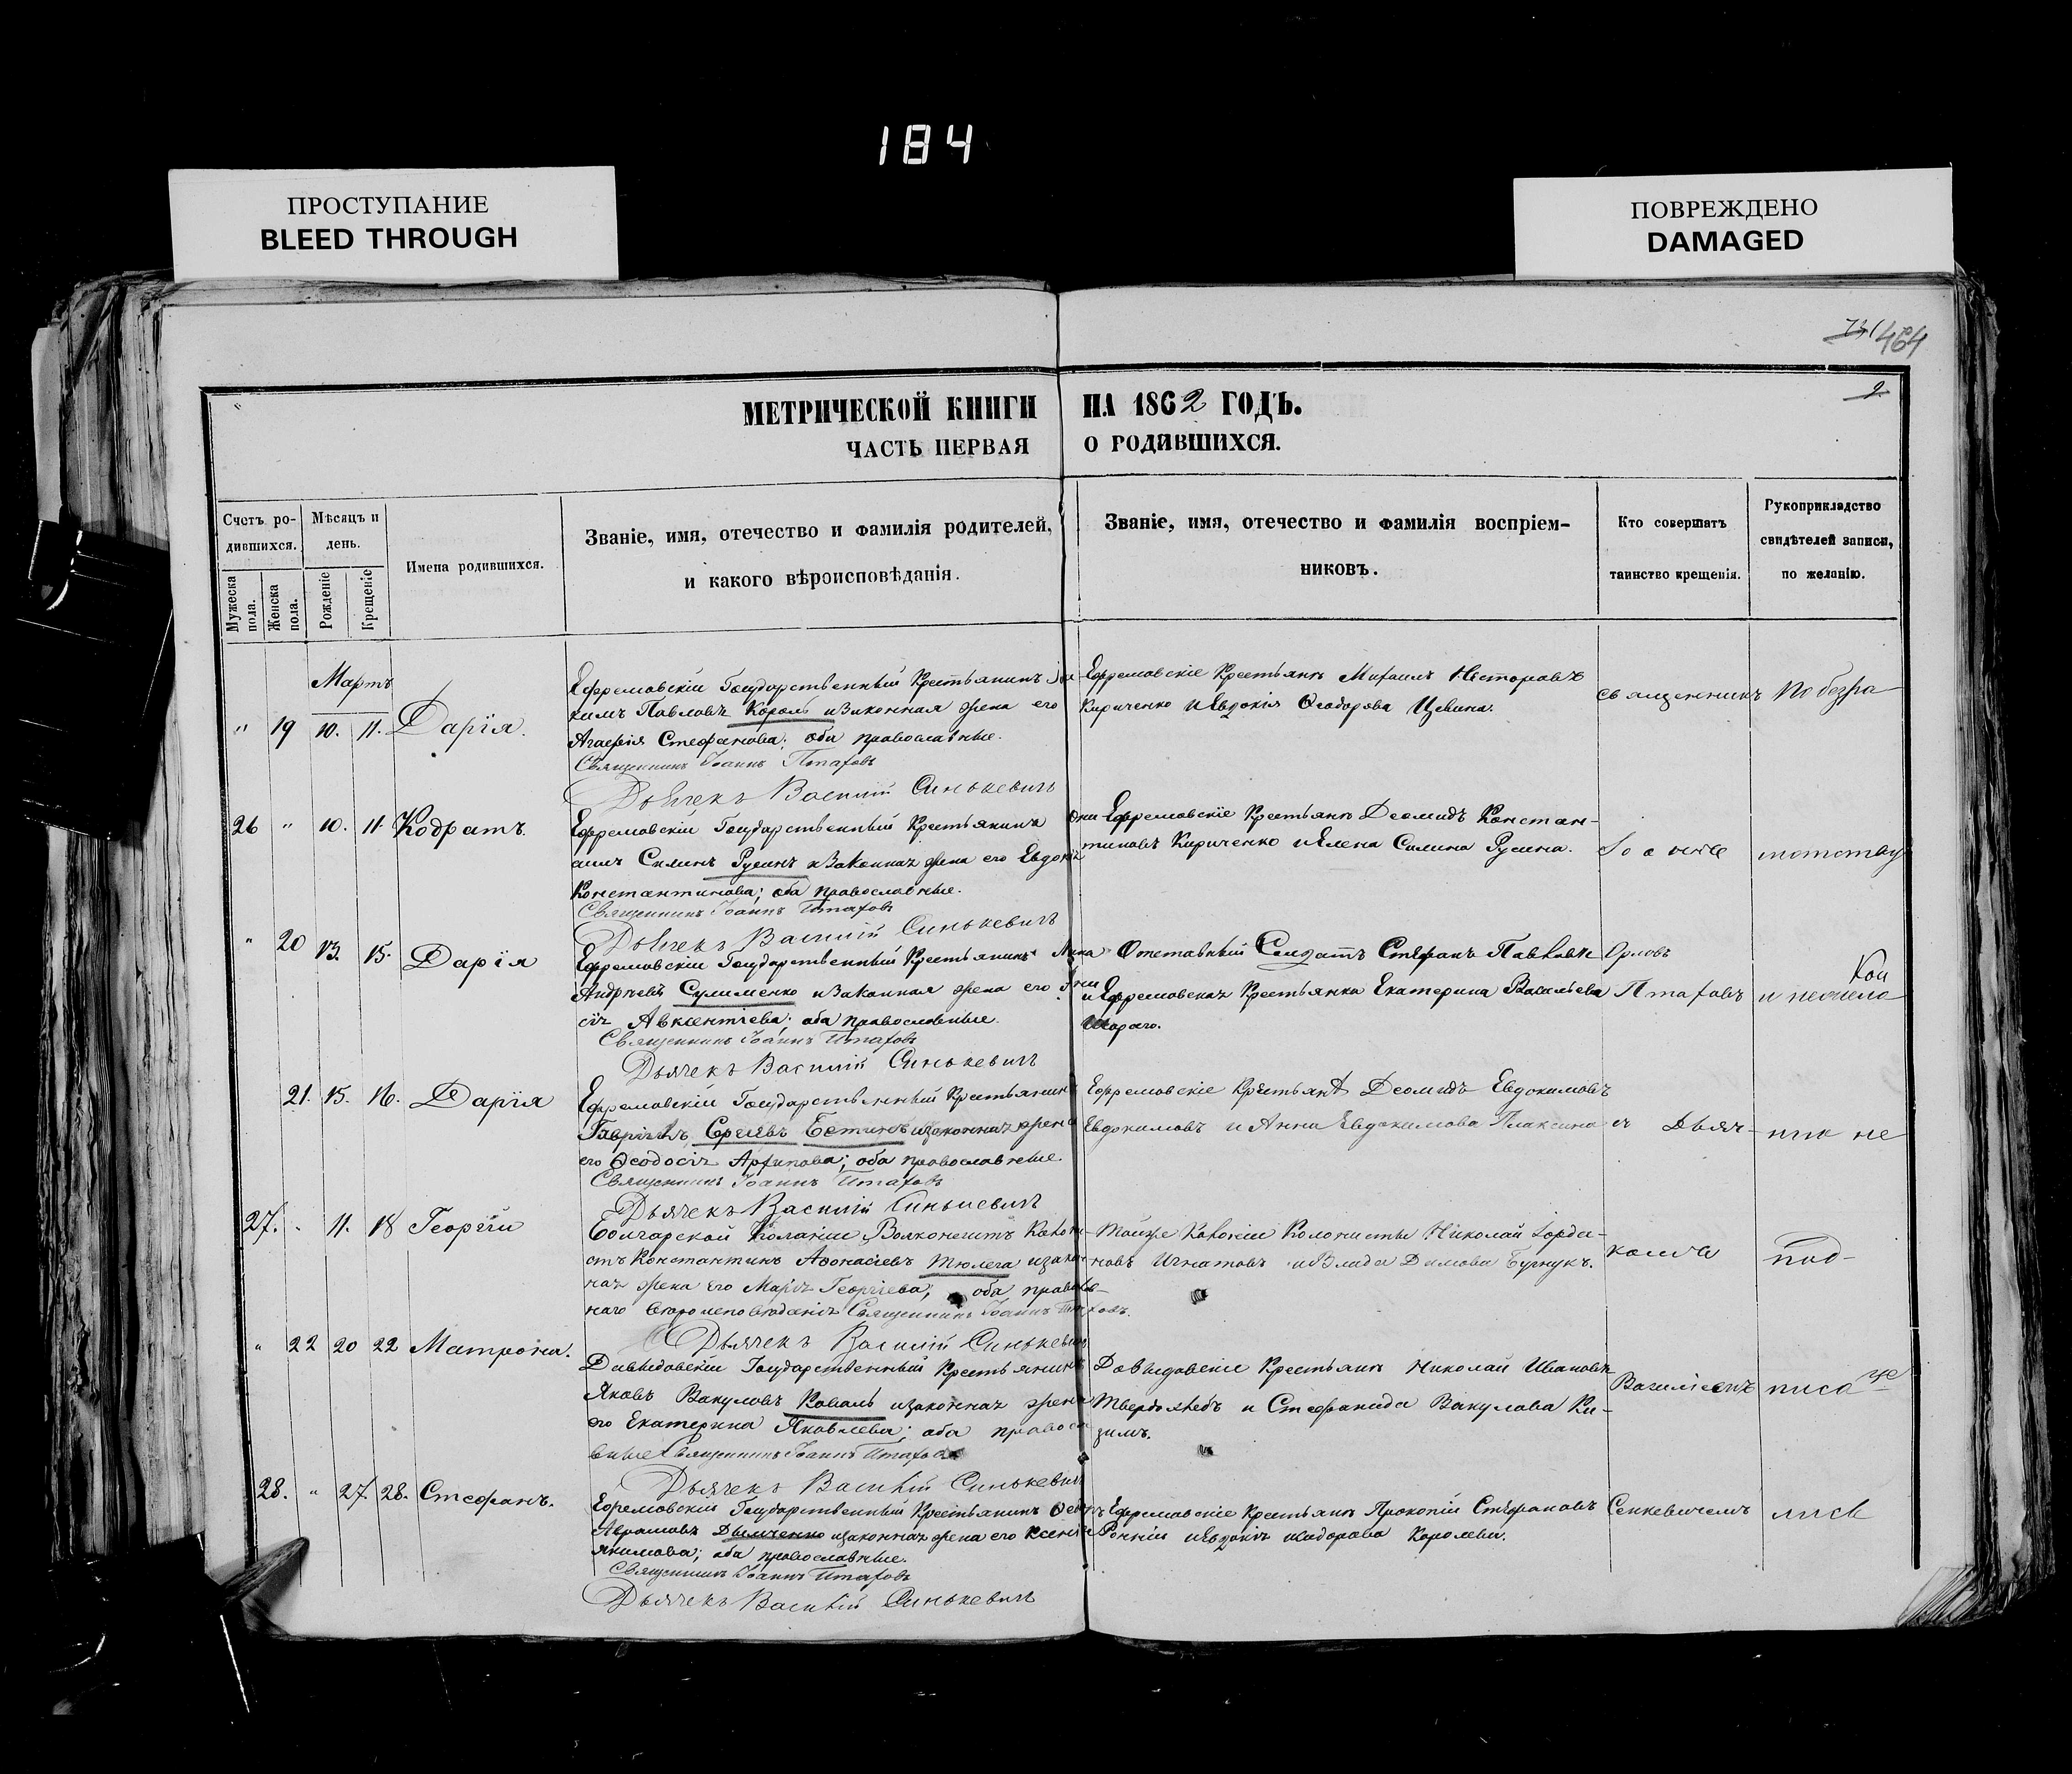 184
ПРОСТУПАНИЕ
BLEED THROUGH
ПОВРЕЖДЕНО
DAMAGED
464
2
МЕТРИЧЕСКОЙ КНИГИ НА 1862 ГОДЪ.
ЧАСТЬ ПЕРВАЯ О РОДИВШИХСЯ.
Счетъ ро-
дившихся.
Мужеска пола.
Женска пола.
Мѣсяцъ и
день.
Рожденіе
Крещеніе
Имена родившихся.
Званіе, имя, отечество и фамилія родителей,
и какого вѣроисповѣданія.
Званіе, имя, отечество и фамилія воспріем-
никовъ.
Кто совершатъ
таинство крещенія.
Рукоприкладство
свидѣтелей записи,
по желанію.
Мартъ
" 19 10. 11. Дарія.
Ефремовскій Государственный Крестьянинъ Іоа-
кимъ Павловъ Король и законная жена его
Агафія Стефанова; оба православные.
Священникъ Іоаннъ Птаховъ
Дьячекъ Василій Синькевичъ
Ефремовскіе Крестьяне Михаилъ Несторовъ
Кириченко и Евдокія Ѳеодорова Цевина.
священникъ
по безгра
26 " 10. 11. Кодратъ.
Ефремовскій Государственный Крестьянинъ Они-
симъ Силинъ Русинъ и законная жена его Евдокія
Константинова; оба православные.
Священникъ Іоаннъ Птаховъ
Дьячекъ Василій Синькевичъ
Ефремовскіе Крестьяне Деомидъ Констан-
тиновъ Кириченко и Елена Силина Русина.
Іоанне
мотству
" 20 13. 15. Дарія
Ефремовскій Государственный Крестьянинъ
Андреевъ Сулименко и законная жена его
Авксентіева; оба православные.
Священникъ Іоаннъ Птаховъ
Дьячекъ Василій Синькевичъ
Отставный Солдатъ Стефанъ Павловъ Орловъ
и Ефремовская Крестьянка Екатерина Васильева
Птаховъ
21. 15. 16. Дарія
Ефремовскій Государственный Крестьянинъ
Гавріилъ Сергіевъ Бетинъ и законная жена
его Ѳеодосія Архипова; оба православные.
Священникъ Іоаннъ Птаховъ
Дьячекъ Василій Синькевичъ
Ефремовскіе Крестьяне Деомидъ Евдокимовъ
Евдокимовъ и Анна Евдокимова Плаксина
с Дьяч-
они не
27. " 11. 18 Георгій
Болгарской Колоніи Волконештъ Колони-
стъ Константинъ Аѳонасіевъ Тюлега и закон-
ная жена его Марія Георгіева; оба православ-
наго вѣроисповѣданія Священникъ Іоаннъ Птаховъ.
Дьячекъ Василій Синькевичъ
Тойже Колоніи Колонисты Николай Іорда-
новъ Игнатовъ и Влада Димова
комъ
под-
" 22 20 22 Матрона.
Давыдовскій Государственный Крестьянинъ
Яковъ Вакуловъ Коваль и законная жена
его Екатерина Яковлева; оба правосла-
вные Священникъ Іоаннъ Птаховъ
Дьячекъ Василій Синькевичъ
Давыдовскіе Крестьяне Николай Ивановъ
Твердохлѣбъ и Стефанида Вакулова Ки-
зимъ.
Василіемъ
писа
28. " 27. 28. Стефанъ.
Ефремовскій Государственный Крестьянинъ
Абрамовъ Дымченко и законная жена его Ксенія
Якимова; оба православные.
Священникъ Іоаннъ Птаховъ
Дьячекъ Василій Синькевичъ
Ефремовскіе Крестьяне Прокопій Стефановъ
и Евдокія Ѳеодорова Королева.
Сенкевичемъ
лись